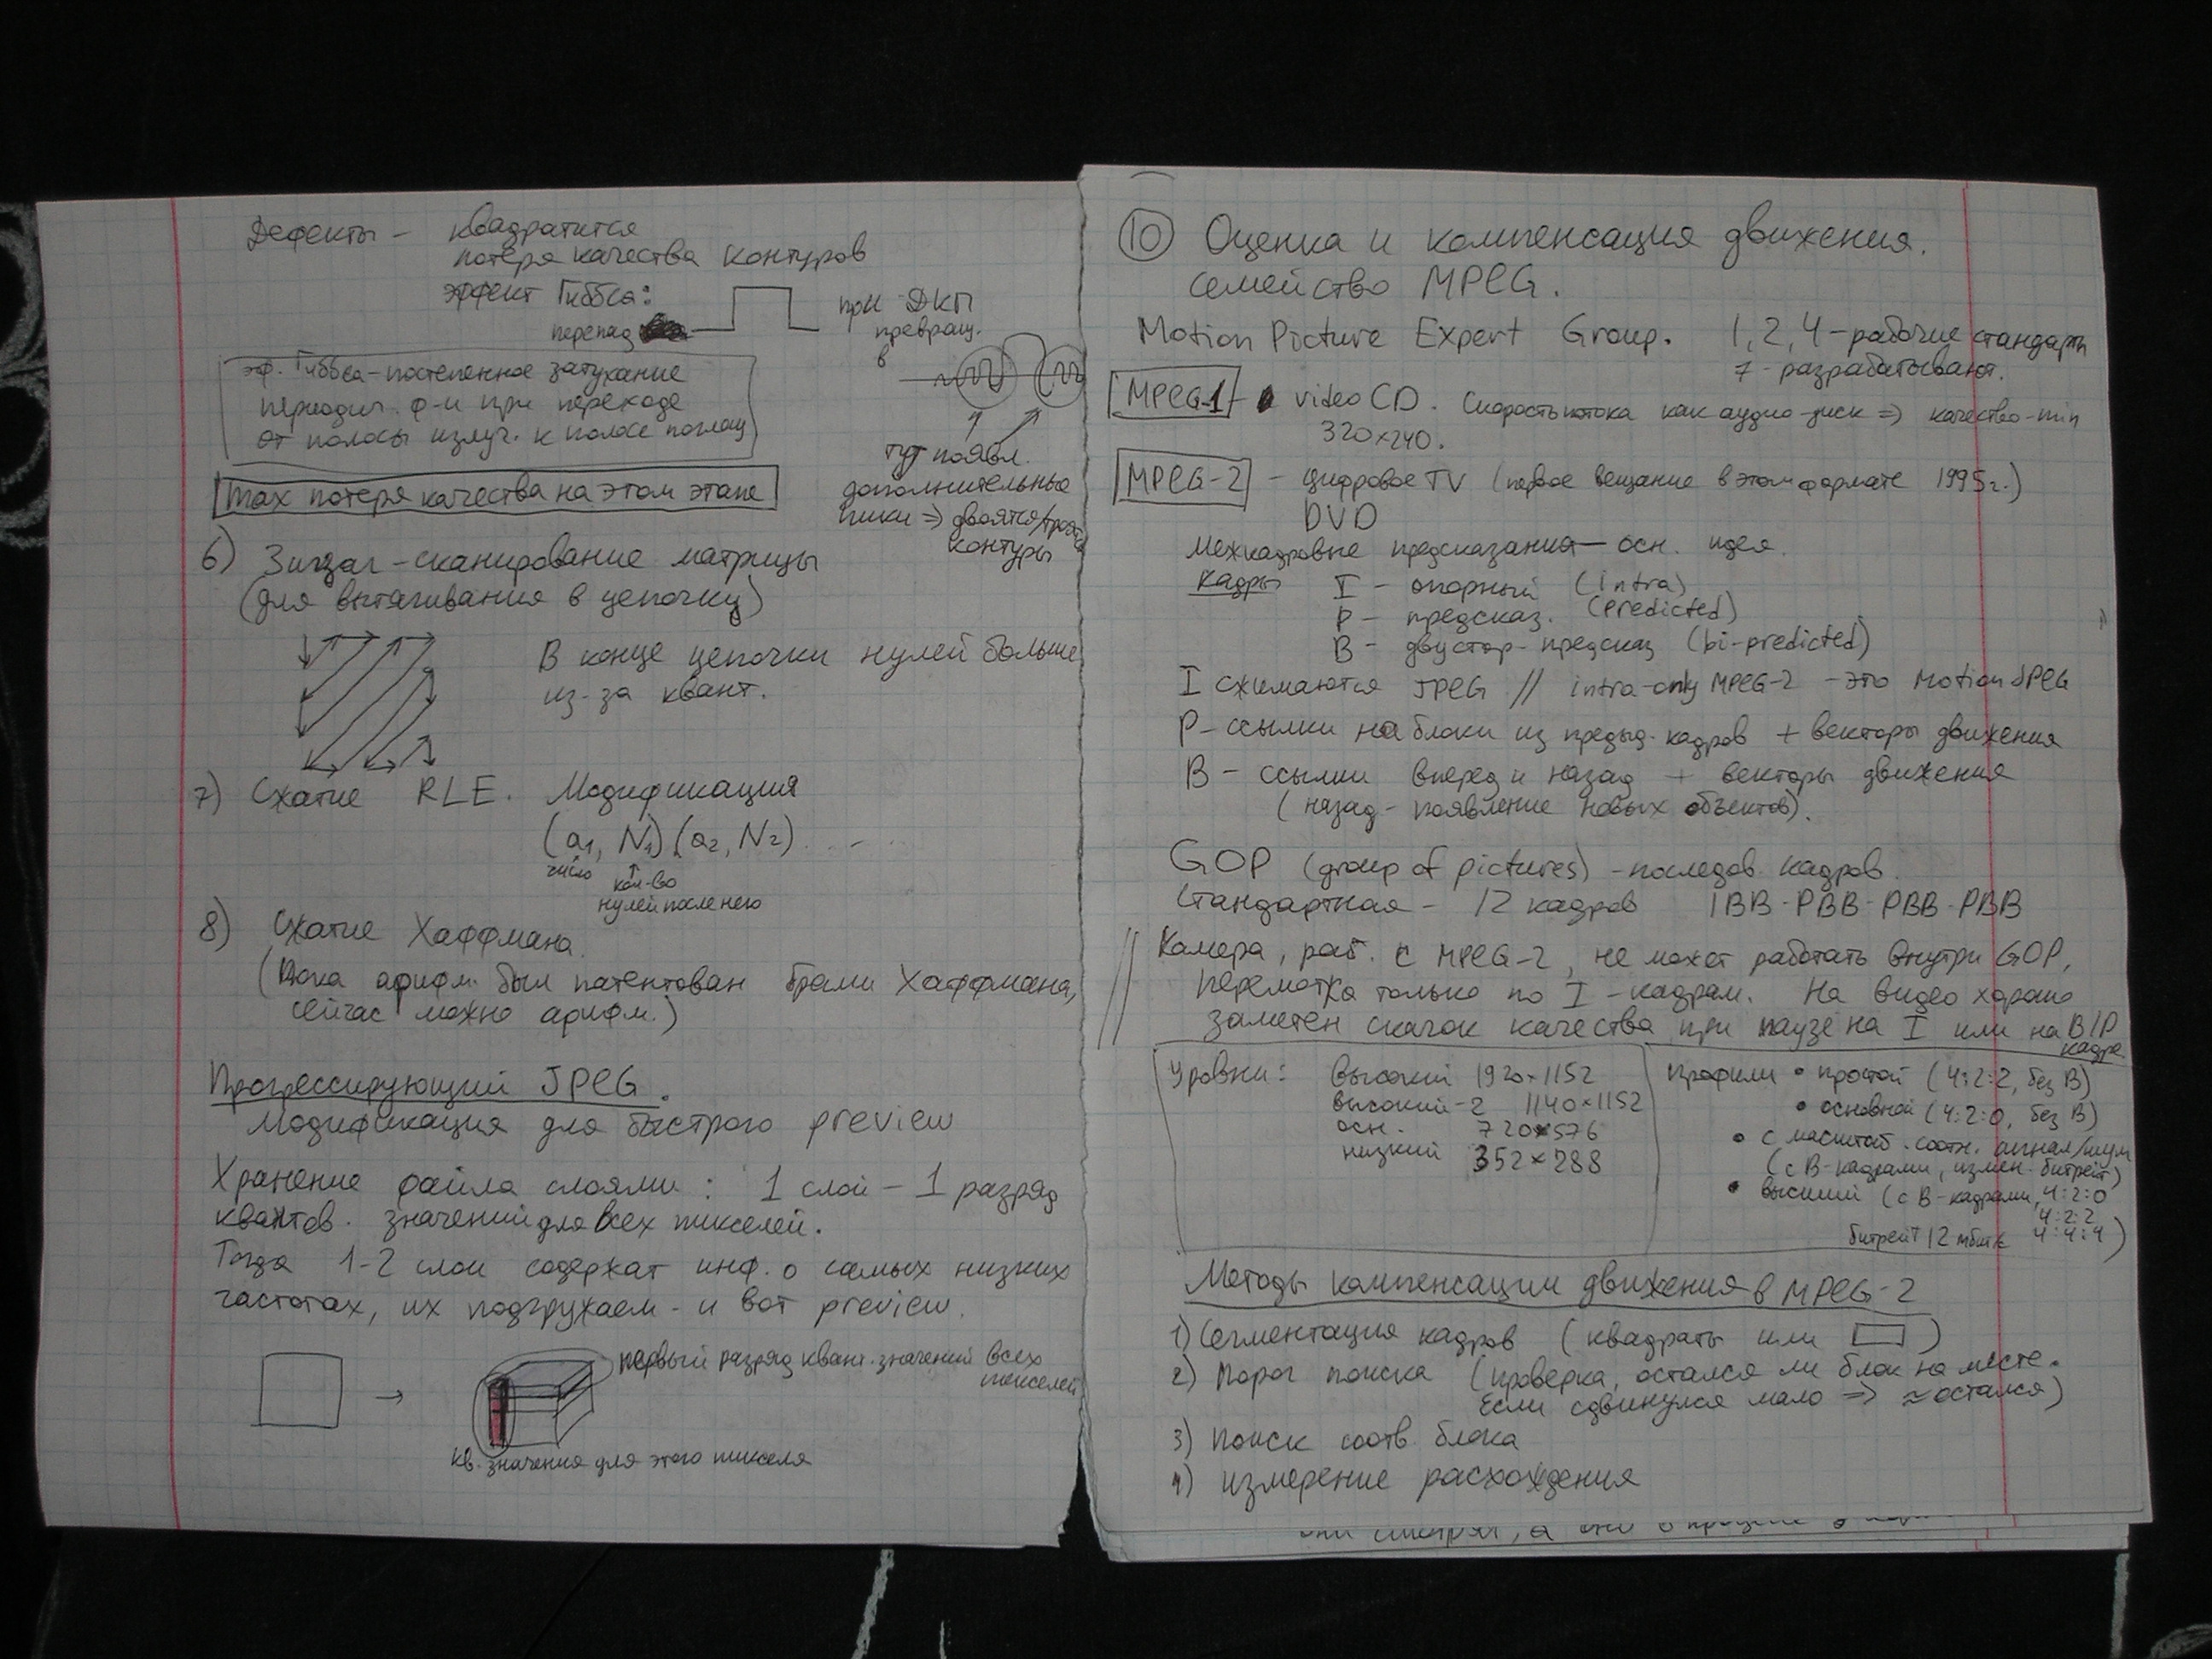 Дефекты – квадратится
потеря качества контуров
эффект Гиббса:
перепад
при ДКП
превращ.
в
эф. Гиббса – постепенное затухание
периодич. ф-и при переходе
от полосы излуч. к полосе поглощ
тут появл.
дополнительные
пики => двоятся/троятся
контуры
max потеря качества на этом этапе
6) Зигзаг-сканирование матрицы
(для вытягивания в цепочку)
В конце цепочки нулей больше
из-за квант.
7) Сжатие RLE. Модификация
(a1, N1) (a2, N2) ...
число
кол-во
нулей после него
8) Сжатие Хаффмана.
(Пока арифм. был патентован брали Хаффмана,
сейчас можно арифм.)
Прогрессирующий JPEG.
Модификация для быстрого preview
Хранение файла слоями: 1 слой – 1 разряд
квантов. значений для всех пикселей.
Тогда 1-2 слои содержат инф. о самых низких
частотах, их подгружаем - и вот preview.
первый разряд квант. значений всех
пикселей
кв. значения для этого пикселя
10 Оценка и компенсация движения.
семейство MPEG.
Motion Picture Expert Group. 1, 2, 4 – рабочие стандарты
7 - разрабатывают.
MPEG-1 - video CD. Скорость потока как аудио-диск => качество-min
320×240.
MPEG-2 – цифровое TV (первое вещание в этом формате 1995г.)
DVD
Межкадровые предсказания – осн. идея.
Кадры I – опорный (intra)
P – предсказ. (predicted)
B – двустор-предсказ (bi-predicted)
I сжимаются JPEG // intra-only MPEG-2 – это Motion JPEG
P – ссылки на блоки из предыд. кадров + векторы движения
B – ссылки вперед и назад + векторы движения
(назад - появление новых объектов).
GOP (group of pictures) – последов. кадров.
Стандартная – 12 кадров IBB-PBB-PBB-PBB
// Камера, раб. с MPEG-2, не может работать внутри GOP,
перемотка только по I-кадрам. На видео хорошо
заметен скачок качества при паузе на I или на B/P
кадре
Уровни: высокий 1920×1152
высокий-2 1140×1152
осн. 720×576
низкий 352×288
Профили • простой (4:2:2, без B)
• основной (4:2:0, без B)
• с масштаб. соотн. сигнал/шум
(с B-кадрами, измен. битрейт)
• высший (с B-кадрами, 4:2:0
4:2:2
битрейт 12 мбит/с 4:4:4)
Методы компенсации движения в MPEG-2
1) Сегментация кадров (квадраты или )
2) Порог поиска (проверка, остался ли блок на месте.
Если сдвинулся мало => ≈ остался)
3) Поиск соотв. блока
4) измерение расхождения